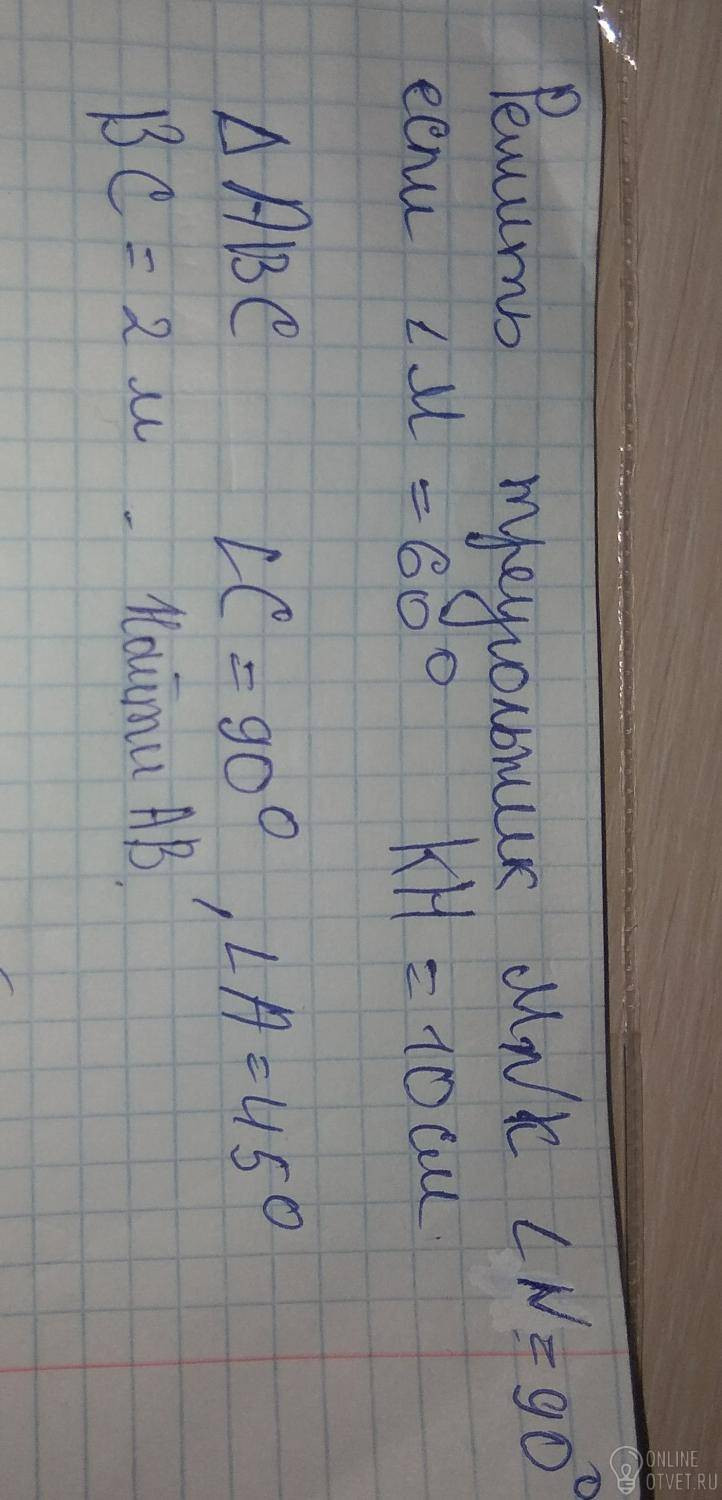 Решить треугольник MNK ∠N=90°
если ∠M=60° KH=10см.
Δ ABC ∠C=90°, ∠A=45°
BC=2м. Найти AB.
ONLINE
OTVET.RU